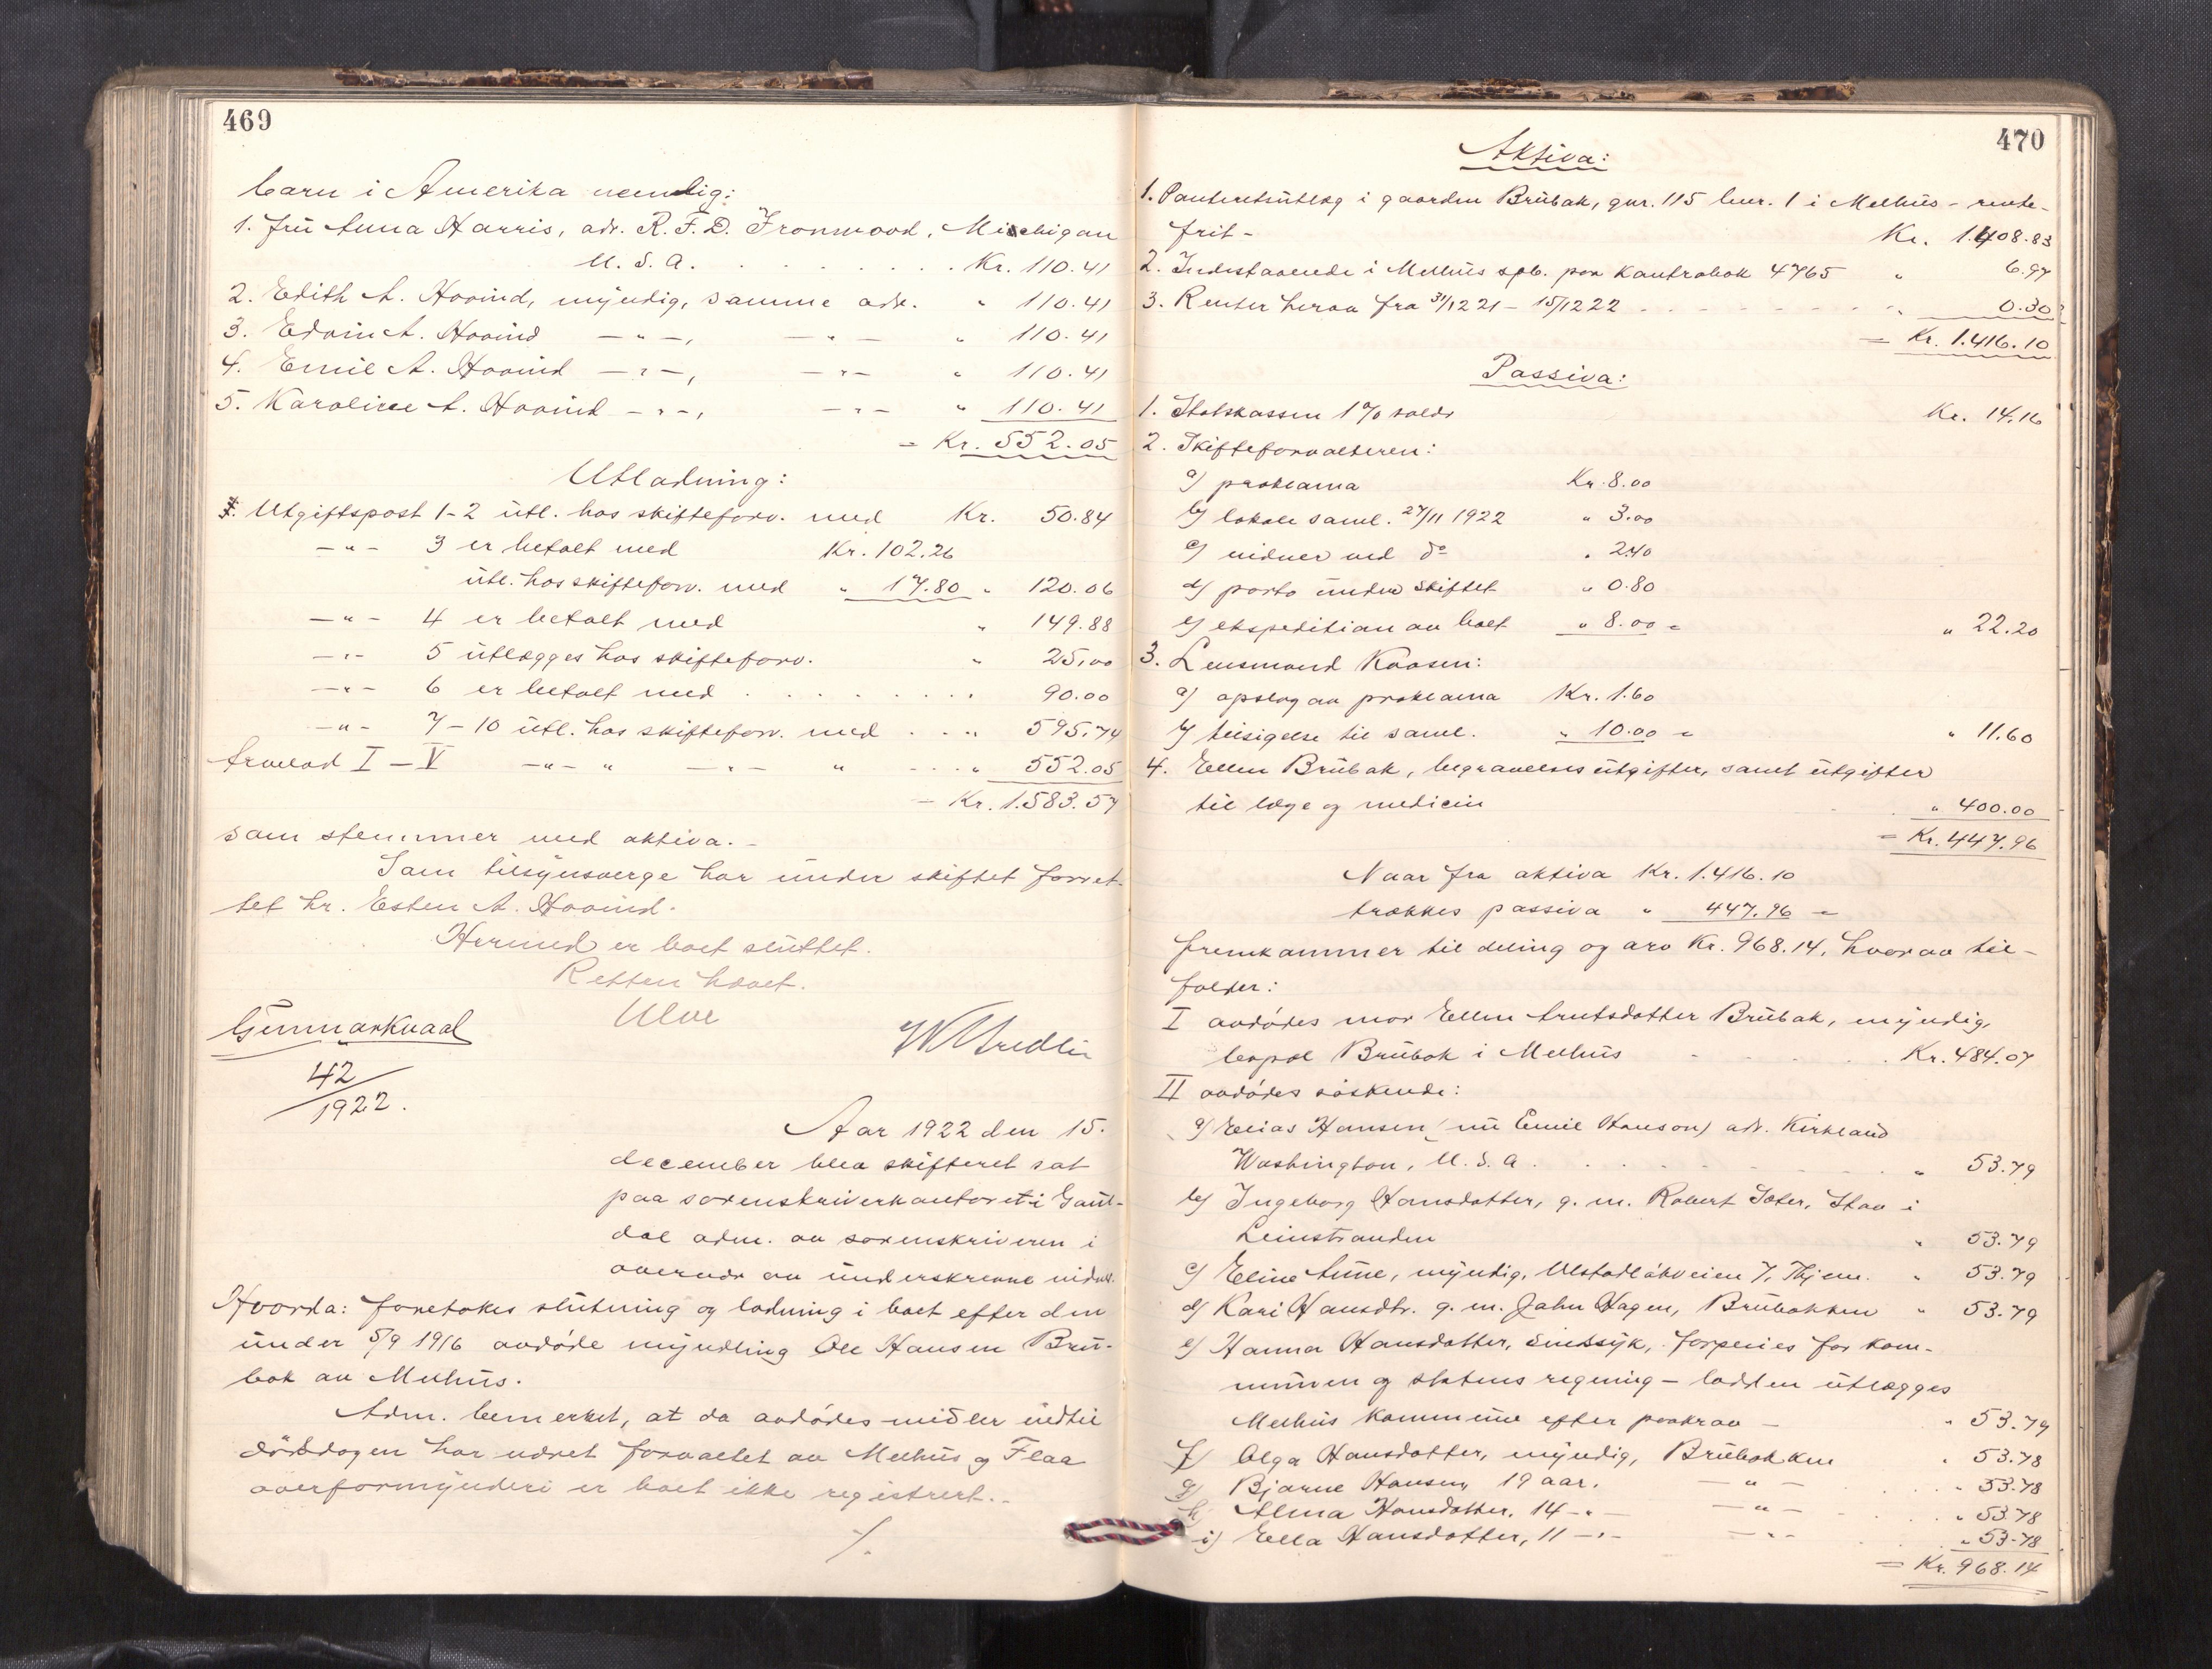 469
barn i Amerika nemlig:
1. Fru Anna Harris, adr. R. F. D. Ironwood, Michigan
U. S. A. . . . . . . . . Kr. 110.41
2. Edith A. Hovind, myndig, samme adr. " 110.41
3. Edvin A. Hovind —"—, —"— " 110.41
4. Emil A. Hovind —"—, —"— " 110.41
5. Karoline A. Hovind —"—, —"— " 110.41
= Kr. 552.05
Utlodning:
Utgiftspost 1-2 utl. hos skifteforv. med Kr. 50.84
—"— 3 er betalt med Kr. 102.26
utl. hos skifteforv. med " 17.80 " 120.06
—"— 4 er betalt med " 149.88
—"— 5 utlægges hos skifteforv. " 25.00
—"— 6 er betalt med . . . . . . . . " 90.00
—"— 7-10 utl. hos skifteforv. med . . " 595.74
Arvelod I - V —"— " —"— " . . . " 552.05
= Kr. 1.583.57
som stemmer med aktiva. -
Som tilsynsverge har under skiftet forret-
tet hr. Esten A. Hovind.
Hermed er boet sluttet.
Retten hævet.
Ulve
Gunnar Kvaal
42/1922.
Aar 1922 den 15.
december blev skifteret sat
paa sorenskriverkontoret i Gaul-
dal adm. av sorenskriveren i
overvær av underskrevne vidner.
Hvorda: foretokes slutning og lodning i boet efter den
under 5/9 1916 avdøde myndling Ole Hansen Bru-
bak av Melhus.
Adm. bemerket, at da avdødes midler indtil
dødsdagen har været forvaltet av Melhus og Flaa
overformynderi er boet ikke registrert. -
/.
470
Aktiva:
1. Panteretsutlæg i gaarden Brubak, gnr. 115 bnr. 1 i Melhus - rente-
frit - Kr. 1.408.83
2. Indestaaende i Melhus spb. paa kontrabok 4765 " 6.97
3. Renter herav fra 31/12 21 - 15/12 22 . . . . . . " 0.30
= Kr. 1.416.10
Passiva:
1. Statskassen 1% saldo Kr. 14.16
2. Skifteforvalteren:
a) proklama Kr. 8.00
b) lokale saml. 27/11 1922 " 3.00
c) vidner ved do " 2.40
d) porto under skiftet " 0.80
e) ekspedition av boet " 8.00 = " 22.20
3. Lensmand Kaasen:
a) opslag av proklama Kr. 1.60
b) tilsigelse til saml. " 10.00 = " 11.60
4. Ellen Brubak, begravelsesutgifter, samt utgifter
til læge og medicin " 400.00
= Kr. 447.96
Naar fra aktiva Kr. 1.416.10
trækkes passiva " 447.96 =
fremkommer til deling og arv Kr. 968.14, hvorav til-
falder:
I avdødes mor Ellen Arntsdatter Brubak, myndig,
bopæl Brubak i Melhus . . . . Kr. 484.07
II avdødes søskende:
a) Elias Hansen (nu Emil Hanson) adr. Kirkland
Washington, U. S. A. . . . . . . . . " 53.79
b) Ingeborg Hansdatter, g. m. Robert Sæter, Stav i
Leinstranden " 53.79
c) Eline Aune, myndig, Ulstadløkveien 7, Thjem. " 53.79
d) Kari Hansdtr. g. m. John Hagen, Brubakken " 53.79
e) Hanna Hansdatter, sindssyk, forpleies for kom-
munen og statens regning - lodden utlægges
Melhus kommune efter paakrav - " 53.79
f) Olga Hansdatter, myndig, Brubakken " 53.78
g) Bjarne Hansen, 19 aar. —"— . . . " 53.78
h) Alma Hansdatter, 14 —"— —"— . . . " 53.78
i) Ella Hansdatter, 11 —"— —"— . . . " 53.78
= Kr. 968.14